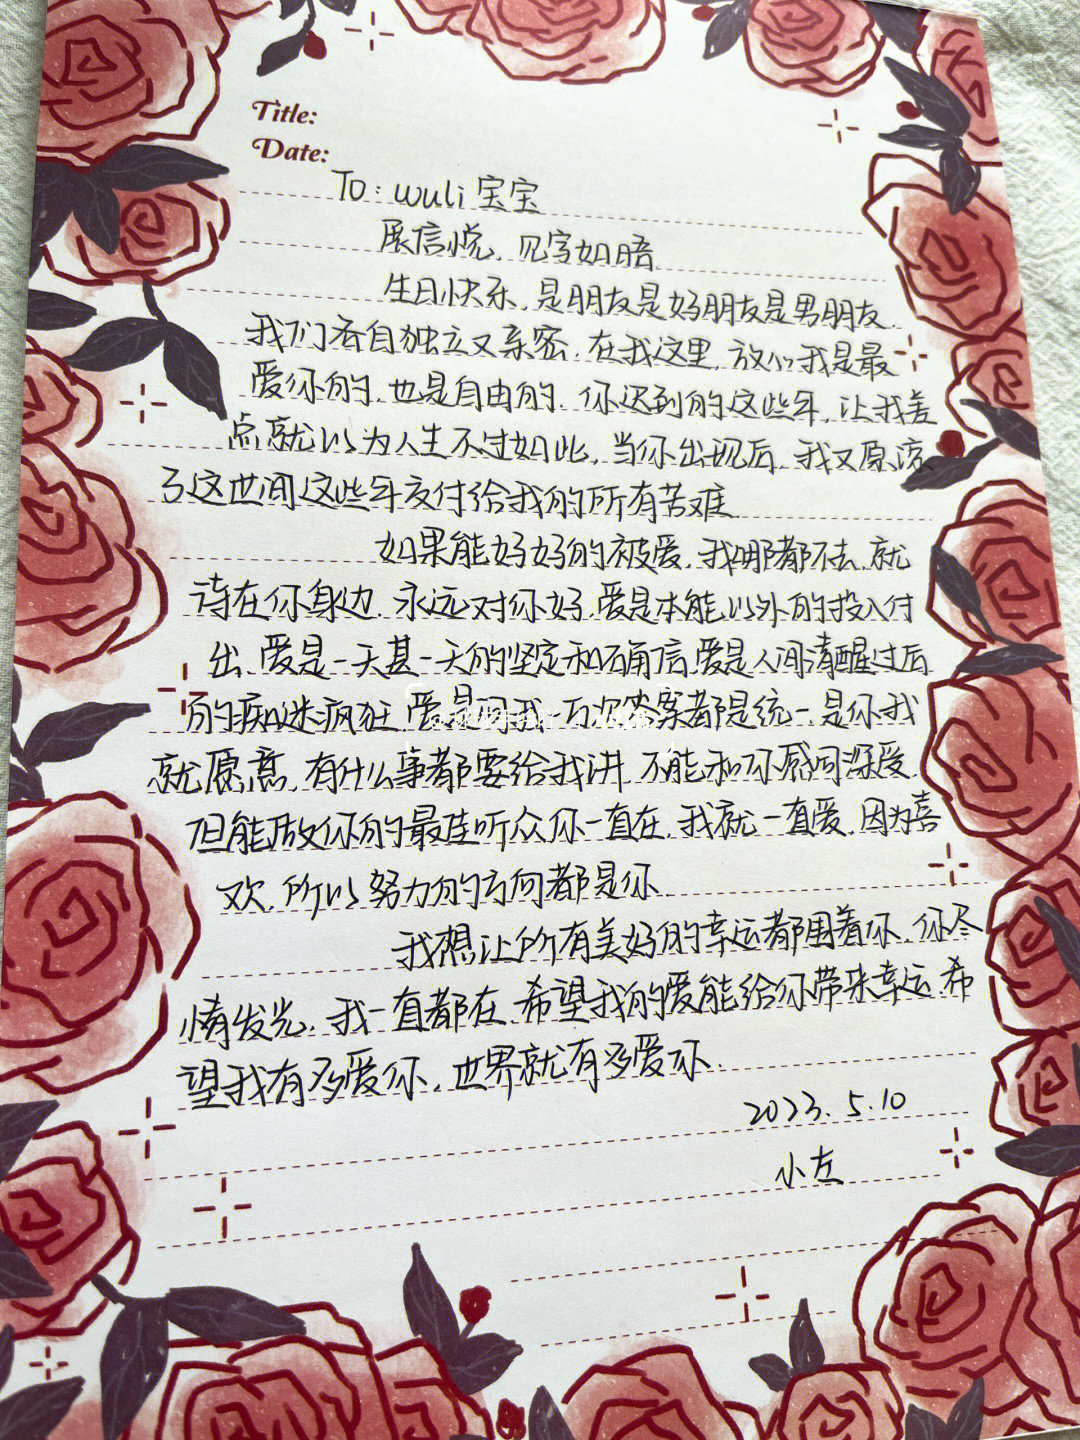 Title:
Date:
To：wuli宝宝
展信悦，见字如晤
生日快乐，是朋友是好朋友是男朋友，
我们各自独立又亲密，在我这里，放心我是最
爱你的，也是自由的，你迟到的这些年，让我差
点就以为人生不过如此，当你出现后，我又原谅
了这世间这些年交付给我的所有苦难
如果能好好的被爱，我哪都不去，就
待在你身边，永远对你好，爱是本能以外的投入付
出，爱是一天甚一天的坚定和确信，爱是人间清醒过后
的痴迷疯狂，爱是问我万次答案都是统一，是你我
就愿意，有什么事都要给我讲，不能和你感同深爱，
但能做你的最佳听众你一直在，我就一直爱，因为喜
欢，所以努力的方向都是你
我想让所有美好的幸运都围着你，你尽
情发光，我一直都在，希望我的爱能给你带来幸运，希
望我有多爱你，世界就有多爱你．
2023.5.10
小左